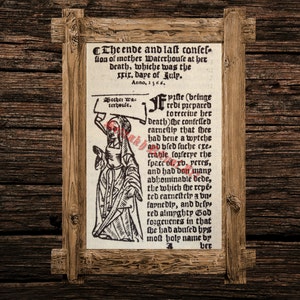 The ende and last confes-
sion of mother Waterhouse at her
death, whiche was the
xxix. daye of July.
Anno. 1566.
Mother Wa-
terhouse.
Fyrste (beinge
redi prepared
to receive her
death) she confessed
earnestly that shee
had bene a wytche
and used suche
the space of xv. yeres,
and had don many
abhominable dede,
the which she repe-
ted earnestely & un-
faynedly, and desy-
red almyghty God
forgevenes in that
she had abused hys
most holy name by
A
her